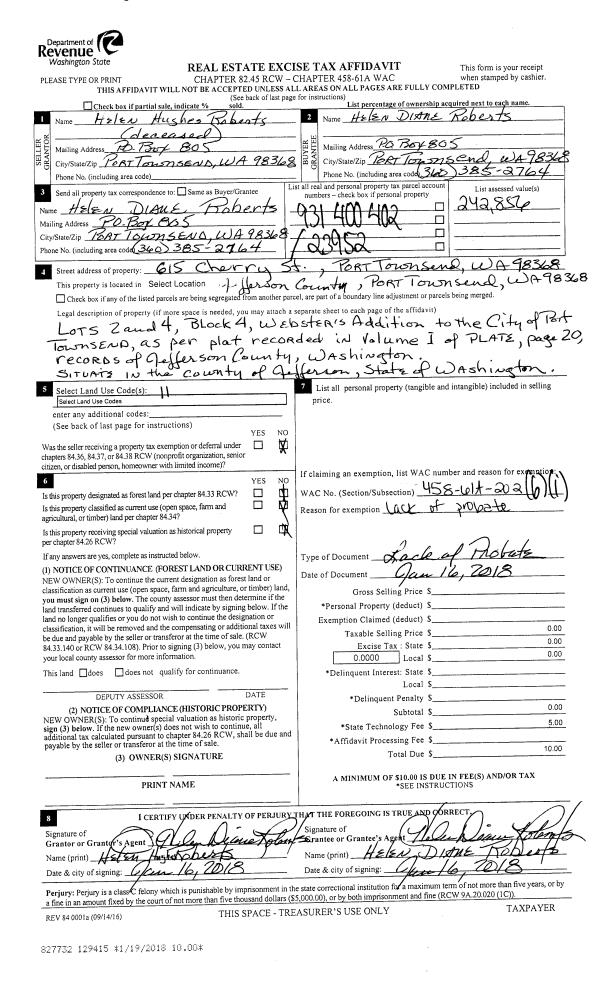 Department of
Revenue
Washington State
PLEASE TYPE OR PRINT
REAL ESTATE EXCISE TAX AFFIDAVIT
CHAPTER 82.45 RCW – CHAPTER 458-61A WAC
This form is your receipt
when stamped by cashier.
THIS AFFIDAVIT WILL NOT BE ACCEPTED UNLESS ALL AREAS ON ALL PAGES ARE FULLY COMPLETED
(See back of last page for instructions)
Check box if partial sale, indicate % sold.
List percentage of ownership acquired next to each name.
1 Name Helen Hughes Roberts
(deceased)
SELLER
GRANTOR
Mailing Address P.O. Box 805
City/State/Zip Port Townsend, WA 98368
Phone No. (including area code)
2 Name Helen Diane Roberts
BUYER
GRANTEE
Mailing Address PO Box 805
City/State/Zip Port Townsend, WA 98368
Phone No. (including area code) (360) 385-2764
3 Send all property tax correspondence to: Same as Buyer/Grantee
Name Helen Diane Roberts
Mailing Address P.O. Box 805
City/State/Zip Port Townsend, WA 98368
Phone No. (including area code) (360) 385-2764
List all real and personal property tax parcel account
numbers – check box if personal property
931 400 402
/ 23952
List assessed value(s)
242,856
4 Street address of property: 615 Cherry St., Port Townsend, WA 98368
This property is located in Select Location Jefferson County, Port Townsend, WA 98368
Check box if any of the listed parcels are being segregated from another parcel, are part of a boundary line adjustment or parcels being merged.
Legal description of property (if more space is needed, you may attach a separate sheet to each page of the affidavit)
Lots 2 and 4, Block 4, Webster's Addition to the City of Port
Townsend, as per plat recorded in Volume I of PLATE, page 20,
records of Jefferson County, Washington.
Situate in the county of Jefferson, State of Washington.
5 Select Land Use Code(s): 11
Select Land Use Codes
enter any additional codes:
(See back of last page for instructions)
YES NO
Was the seller receiving a property tax exemption or deferral under
chapters 84.36, 84.37, or 84.38 RCW (nonprofit organization, senior
citizen, or disabled person, homeowner with limited income)?
6
YES NO
Is this property designated as forest land per chapter 84.33 RCW?
Is this property classified as current use (open space, farm and
agricultural, or timber) land per chapter 84.34?
Is this property receiving special valuation as historical property
per chapter 84.26 RCW?
If any answers are yes, complete as instructed below.
(1) NOTICE OF CONTINUANCE (FOREST LAND OR CURRENT USE)
NEW OWNER(S): To continue the current designation as forest land or
classification as current use (open space, farm and agriculture, or timber) land,
you must sign on (3) below. The county assessor must then determine if the
land transferred continues to qualify and will indicate by signing below. If the
land no longer qualifies or you do not wish to continue the designation or
classification, it will be removed and the compensating or additional taxes will
be due and payable by the seller or transferor at the time of sale. (RCW
84.33.140 or RCW 84.34.108). Prior to signing (3) below, you may contact
your local county assessor for more information.
This land does does not qualify for continuance.
DEPUTY ASSESSOR DATE
(2) NOTICE OF COMPLIANCE (HISTORIC PROPERTY)
NEW OWNER(S): To continue special valuation as historic property,
sign (3) below. If the new owner(s) does not wish to continue, all
additional tax calculated pursuant to chapter 84.26 RCW, shall be due and
payable by the seller or transferor at the time of sale.
(3) OWNER(S) SIGNATURE
PRINT NAME
7 List all personal property (tangible and intangible) included in selling
price.
If claiming an exemption, list WAC number and reason for exemption:
WAC No. (Section/Subsection) 458-61A-202(6)(i)
Reason for exemption Lack of probate
Type of Document Lack of Probate
Date of Document Jan 16, 2018
Gross Selling Price $
*Personal Property (deduct) $
Exemption Claimed (deduct) $
Taxable Selling Price $ 0.00
Excise Tax : State $ 0.00
0.0000 Local $ 0.00
*Delinquent Interest: State $
Local $
*Delinquent Penalty $
Subtotal $ 0.00
*State Technology Fee $ 5.00
*Affidavit Processing Fee $
Total Due $ 10.00
A MINIMUM OF $10.00 IS DUE IN FEE(S) AND/OR TAX
*SEE INSTRUCTIONS
8 I CERTIFY UNDER PENALTY OF PERJURY THAT THE FOREGOING IS TRUE AND CORRECT.
Signature of
Grantor or Grantor's Agent Helen Diane Roberts
Name (print) Helen Roberts
Date & city of signing: Jan 16, 2018
Signature of
Grantee or Grantee's Agent Helen Diane Roberts
Name (print) Helen Diane Roberts
Date & city of signing: Jan 16, 2018
Perjury: Perjury is a class C felony which is punishable by imprisonment in the state correctional institution for a maximum term of not more than five years, or by
a fine in an amount fixed by the court of not more than five thousand dollars ($5,000.00), or by both imprisonment and fine (RCW 9A.20.020 (1C)).
REV 84 0001a (09/14/16)
THIS SPACE - TREASURER'S USE ONLY
TAXPAYER
827732 129415 *1/19/2018 10.00*